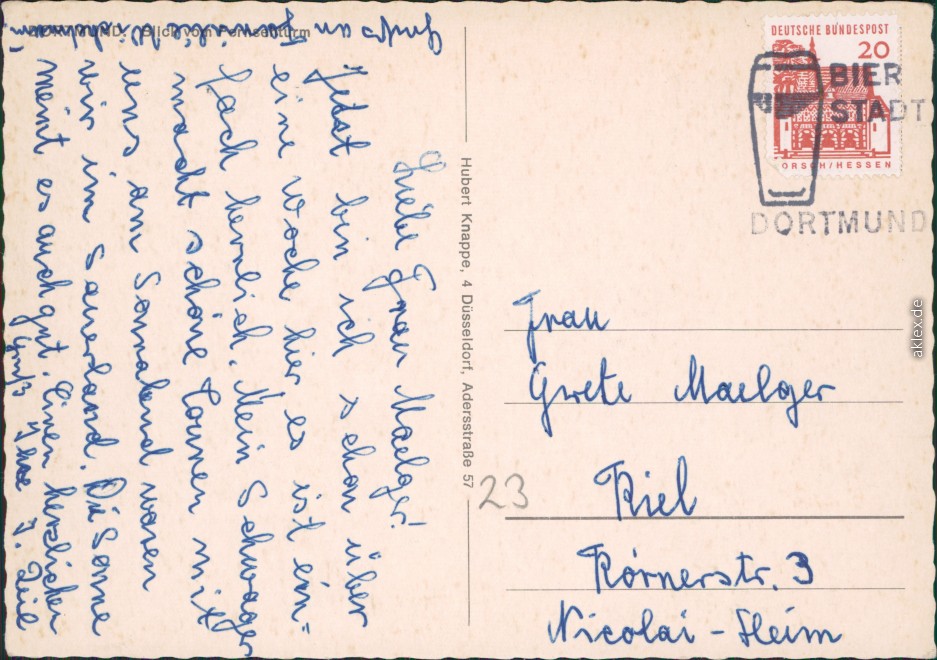 DORTMUND. Blick vom Fernsehturm
Liebe Frau Maelger!
Jetzt bin ich schon über
eine Woche hier es ist ein=
fach herrlich. Mein Schwager
macht schöne Touren mit
uns am Sonnabend waren
wir im Sauerland. Die Sonne
meint es auch gut. Einen herzlichen
Gruß Ihre
Gruß an
Familie
Hubert Knappe, 4 Düsseldorf, Adersstraße 57
DEUTSCHE BUNDESPOST
20
ORSCH/HESSEN
BIER
STADT
DORTMUND
Frau
Grete Maelger
23
Kiel
Körnerstr. 3
Nicolai-Heim
aklex.de